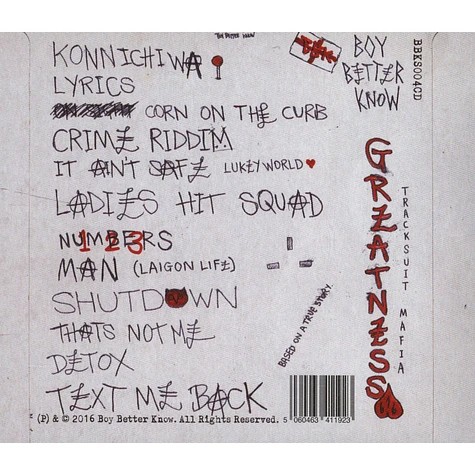 BOY BETTER KNOW
KONNICHIWA
LYRICS
CORN ON THE CURB
CRIME RIDDIM
IT AIN'T SAFE LUKEYWORLD
LADIES HIT SQUAD
NUMBERS
123
MAN (LAIGON LIFE)
SHUTDOWN
THATS NOT ME
DETOX
TEXT ME BACK
(P) & © 2016 Boy Better Know. All Rights Reserved.
5 060463 411923
BASED ON A TRUE STORY.
BOY
BETTER
KNOW
BBKS004CD
GREATNESS
TRACKSUIT MAFIA